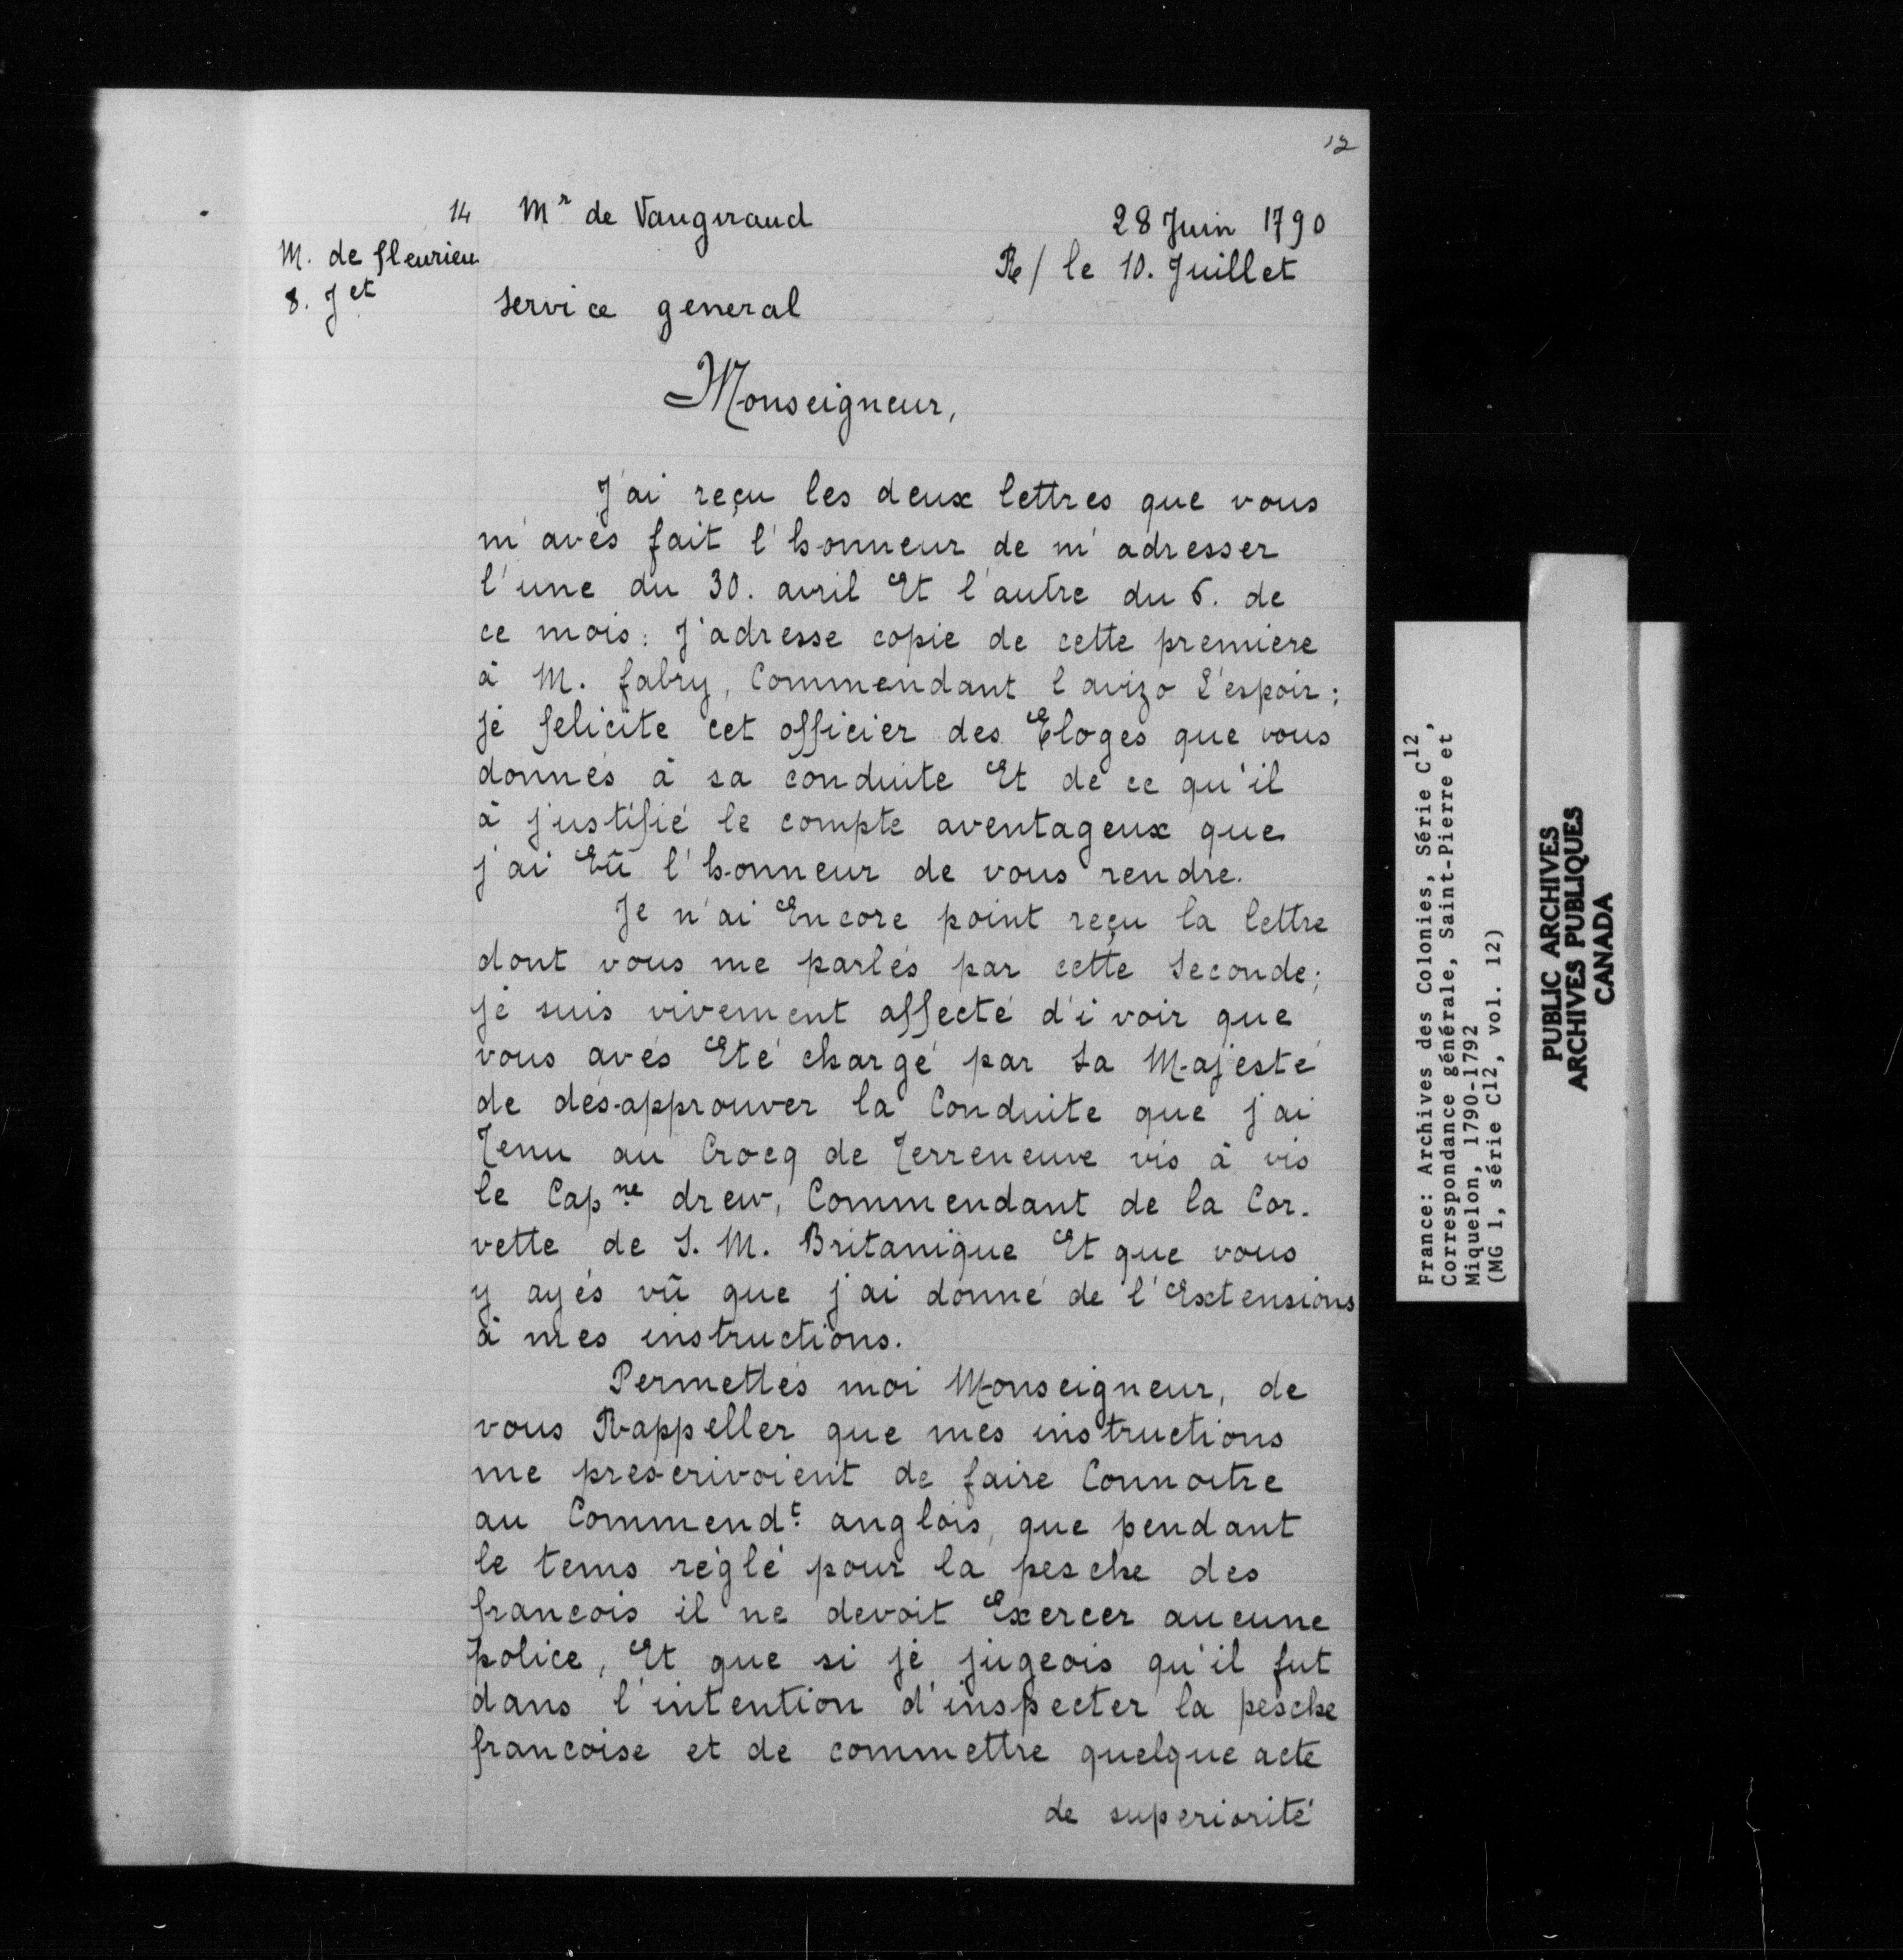 12
14 Mr de Vaugiraud 28 Juin 1790
M. de fleurieu
Re/ le 10. Juillet
8. Jet
Service general
Monseigneur,
J'ai reçu les deux lettres que vous
m'avés fait l'honneur de m'adresser
l'une du 30. avril Et l'autre du 6. de
ce mois: J'adresse copie de cette premiere
à M. fabry, Commendant l'avizo L'espoir;
je felicite cet officier des Eloges que vous
donnés à sa conduite Et de ce qu'il
à justifié le compte aventageux que
j'ai Eû l'honneur de vous rendre.
Je n'ai Encore point reçu la lettre
dont vous me parlés par cette Seconde;
je suis vivement affecté d'i voir que
vous avés Eté chargé par Sa Majesté
de désapprouver la Conduite que j'ai
Tenu au Crocq de Terreneuve vis à vis
le Capne drew, Commendant de la Cor-
vette de S. M. Britanique Et que vous
y ayés vû que j'ai donné de l'Extensions
à mes instructions.
Permettés moi Monseigneur, de
vous Rappeller que mes instructions
me prescrivoient de faire Connoitre
au Commendt anglois, que pendant
le tems réglé pour la pesche des
francois il ne devoit Exercer aucune
police, Et que si je jugeois qu'il fut
dans l'intention d'inspecter la pesche
francoise et de commettre quelque acte
de superiorité
France: Archives des Colonies, Série C12,
Correspondance générale, Saint-Pierre et
Miquelon, 1790-1792
(MG 1, série C12, vol. 12)
PUBLIC ARCHIVES
ARCHIVES PUBLIQUES
CANADA